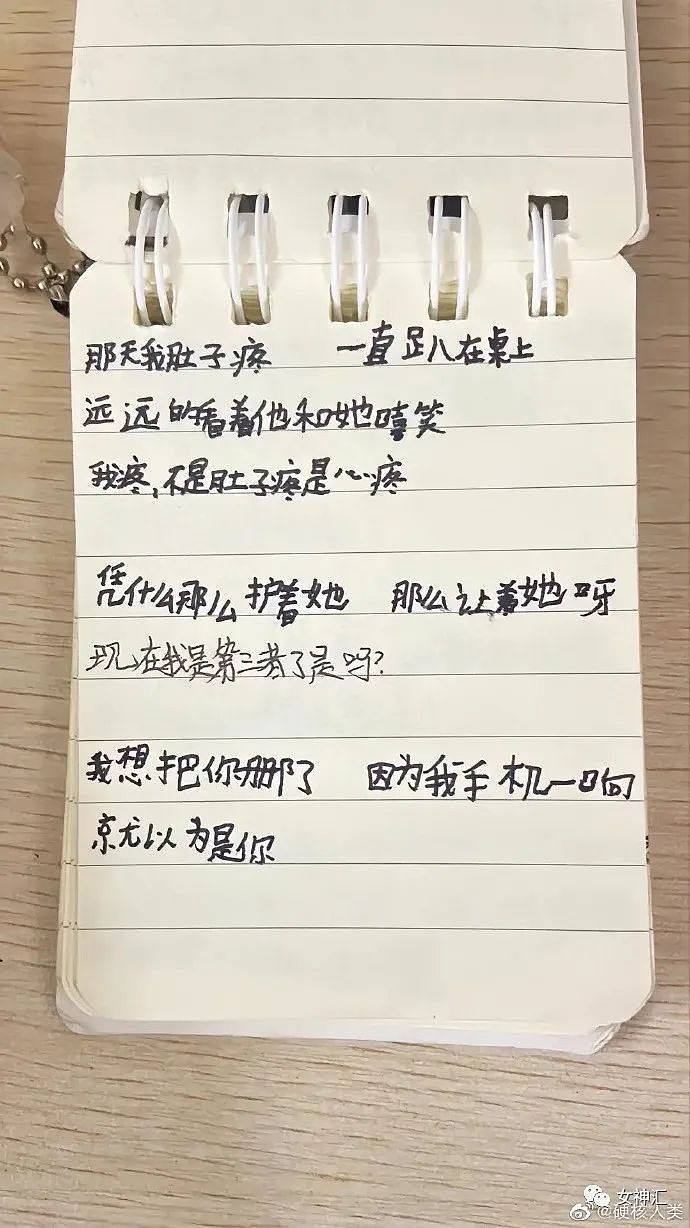 那天我肚子疼 一直趴在桌上
远远的看着他和她嘻笑
我疼,不是肚子疼是心疼
凭什么那么护着她 那么让着她呀
现在我是第三者了是吗?
我想把你删了 因为我手机一响
就以为是你
女神汇
@硬核人类